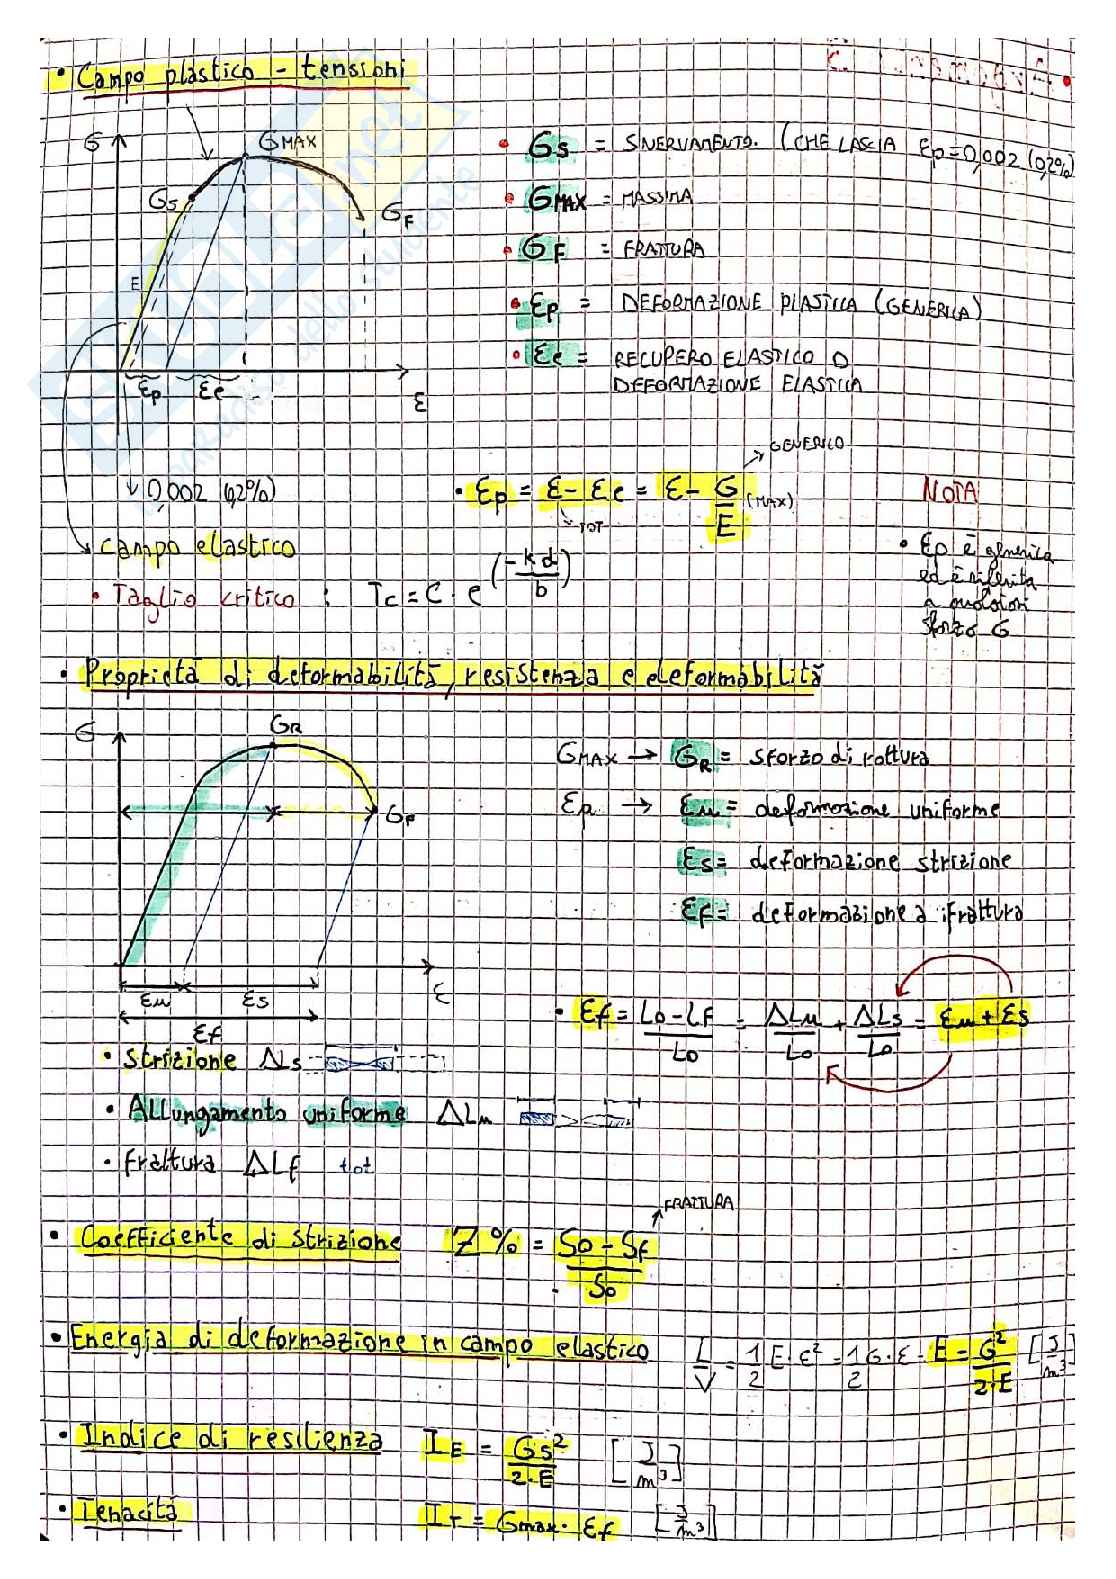 • Campo plastico - tensioni
G
GMAX
GS
GF
E
Ep
Ee
ε
• Gs = SNERVAMENTO. (CHE LASCIA Ep=0,002 (0,2%)
• GMAX = MASSIMA
• GF = FRATTURA
• Ep = DEFORMAZIONE PLASTICA (GENERICA)
• Ee = RECUPERO ELASTICO O
DEFORMAZIONE ELASTICA
GENERICO
0,002 (0,2%)
• Ep = E - Ee = E - G/E (MAX)
TOT
NOTA
campo elastico
• Ep è generica
ed è riferita
a qualsiasi
sforzo G
• Taglio critico : Tc = C · e^(-kd/b)
• Proprietà di deformabilità, resistenza e deformabilità
G
GR
GF
Eu
Es
Ef
ε
GMAX → GR = sforzo di rottura
Ep → Eu = deformazione uniforme
Es = deformazione strizione
Ef = deformazione a frattura
• Ef = Lo-LF/Lo = ΔLu/Lo + ΔLs/Lo = Eu + Es
• Strizione ΔLs
• Allungamento uniforme ΔLu
• frattura ΔLf tot
FRATTURA
• Coefficiente di strizione Z % = So - Sf/So
• Energia di deformazione in campo elastico L/V = 1/2 E·ε² = 1/2 G·ε · E = G²/2·E [J/m³]
• Indice di resilienza IE = Gs²/2·E [J/m³]
• Tenacità IT = Gmax · Ef [J/m³]